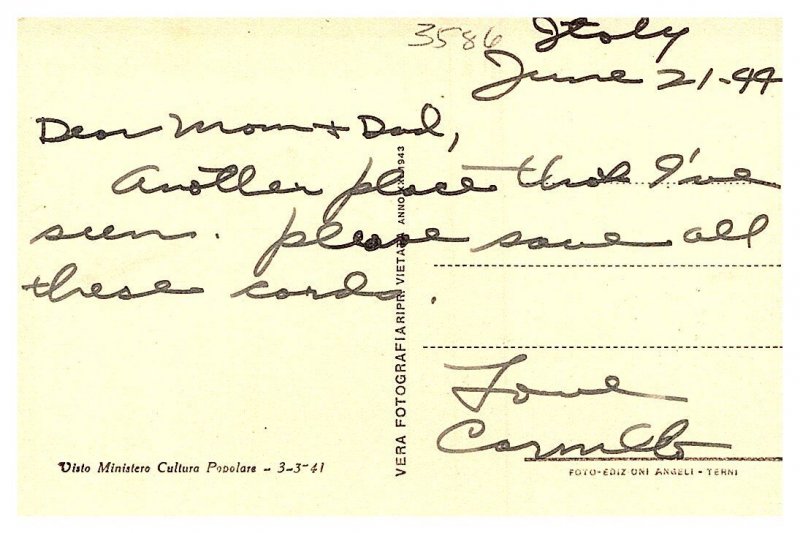 3586 Italy
June 21-44
Dear Mom + Dad,
Another place that I've
seen. please save all
these cards.
Love
Carmello
VERA FOTOGRAFIA RIPR. VIETATA ANNO XXI 1943
Visto Ministero Cultura Popolare - 3-3-41
FOTO-EDIZIONI ANGELI - TERNI